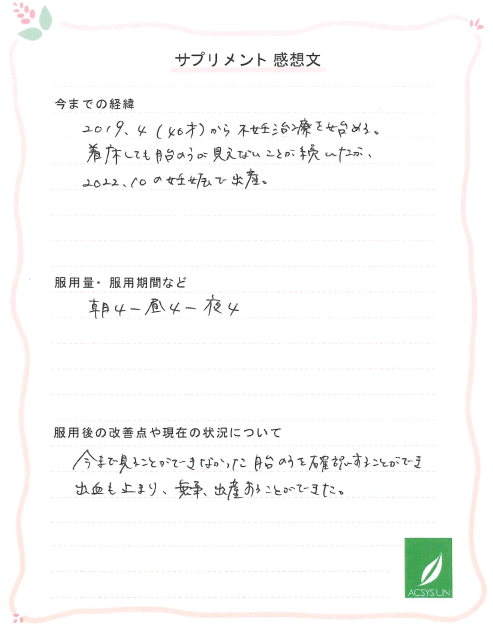 サプリメント 感想文
今までの経緯
2019.4(40才)から不妊治療を始める。
着床しても胎のうが見えないことが続いたが、
2022.10の妊娠で出産。
服用量・服用期間など
朝4-昼4-夜4
服用後の改善点や現在の状況について
今まで見ることができなかった胎のうを確認することができ
出血も止まり、無事、出産することができた。
ACSYS UN